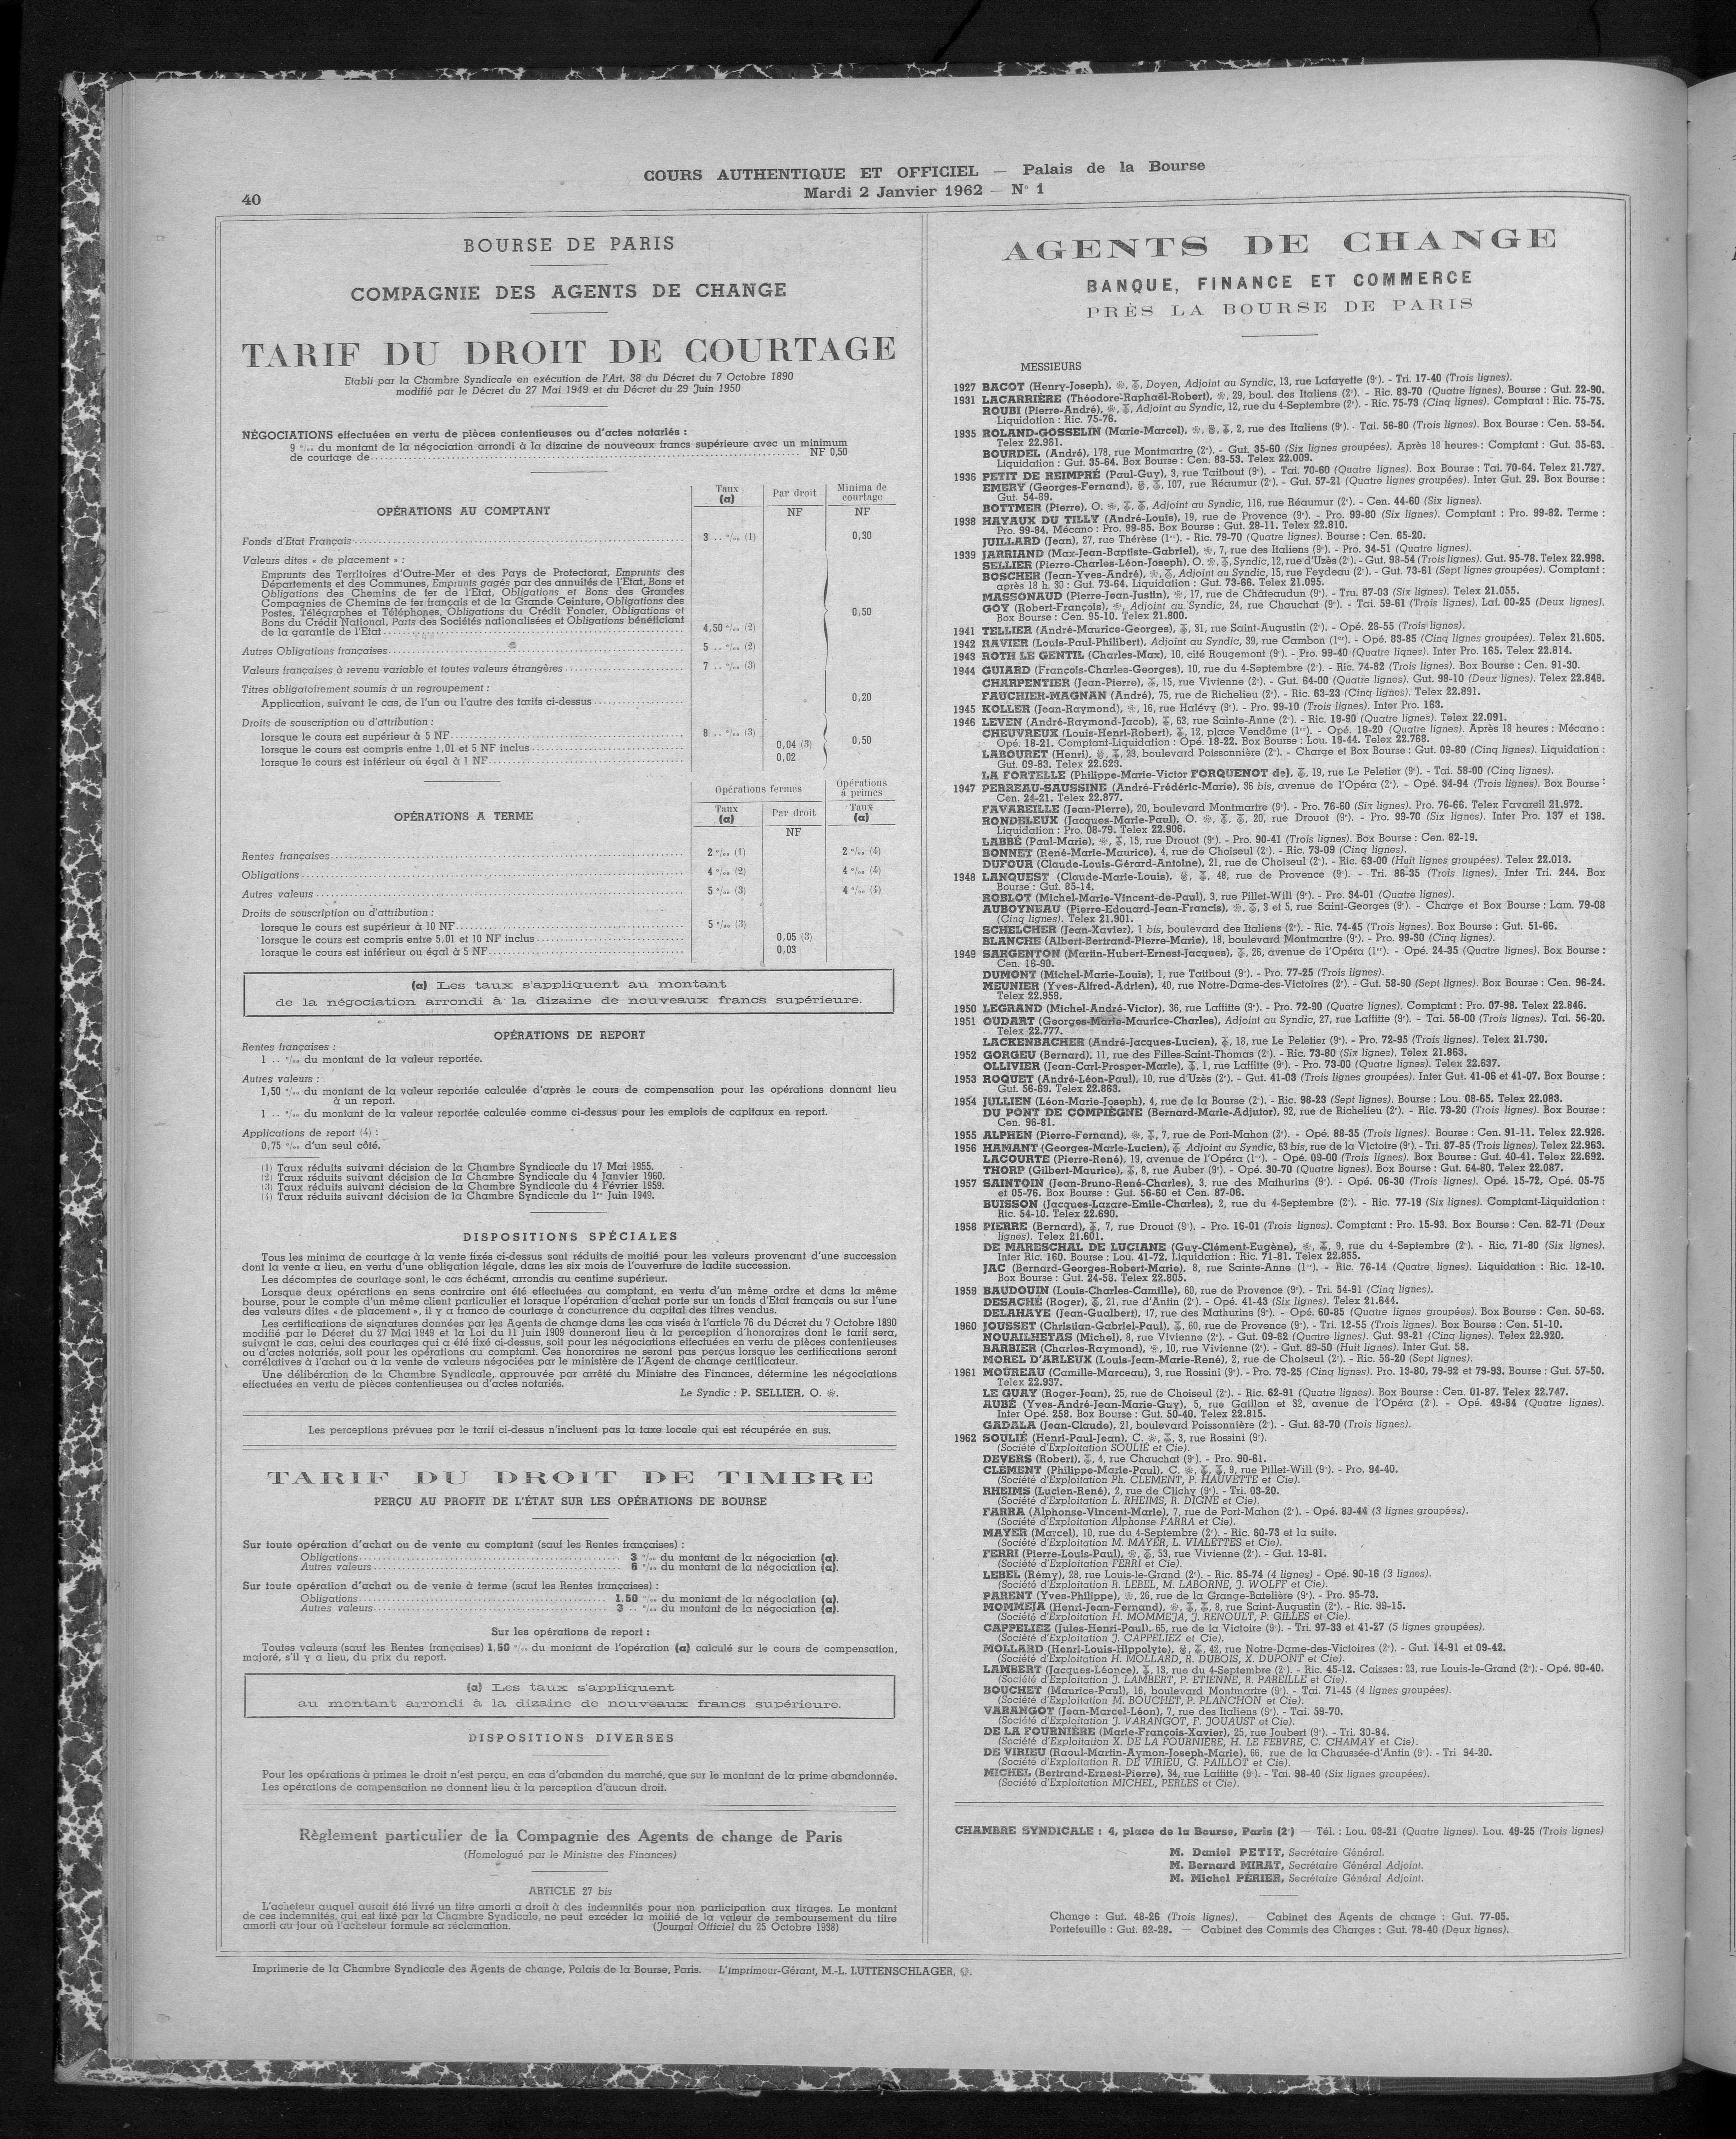 COURS AUTHENTIQUE ET OFFICIEL — Palais de la Bourse
Mardi 2 Janvier 1962 — N° 1
40
BOURSE DE PARIS
COMPAGNIE DES AGENTS DE CHANGE
TARIF DU DROIT DE COURTAGE
Etabli par la Chambre Syndicale en exécution de l'Art. 38 du Décret du 7 Octobre 1890
modifié par le Décret du 27 Mai 1949 et du Décret du 29 Juin 1950
NÉGOCIATIONS effectuées en vertu de pièces contentieuses ou d'actes notariés :
9 °/₀₀ du montant de la négociation arrondi à la dizaine de nouveaux francs supérieure avec un minimum
de courtage de NF 0,50
OPÉRATIONS AU COMPTANT
Taux (a) Par droit Minima de courtage
NF NF
Fonds d'Etat Français 3 .. °/₀₀ (1) 0,30
Valeurs dites « de placement » :
Emprunts des Territoires d'Outre-Mer et des Pays de Protectorat, Emprunts des
Départements et des Communes, Emprunts gagés par des annuités de l'Etat, Bons et
Obligations des Chemins de fer de l'Etat, Obligations et Bons des Grandes
Compagnies de Chemins de fer français et de la Grande Ceinture, Obligations des
Postes, Télégraphes et Téléphones, Obligations du Crédit Foncier, Obligations et
Bons du Crédit National, Parts des Sociétés nationalisées et Obligations bénéficiant
de la garantie de l'Etat 4,50 °/₀₀ (2) 0,50
Autres Obligations françaises 5 .. °/₀₀ (2)
Valeurs françaises à revenu variable et toutes valeurs étrangères 7 .. °/₀₀ (3)
Titres obligatoirement soumis à un regroupement :
Application, suivant le cas, de l'un ou l'autre des tarifs ci-dessus 0,20
Droits de souscription ou d'attribution :
lorsque le cours est supérieur à 5 NF 8 .. °/₀₀ (3) 0,50
lorsque le cours est compris entre 1,01 et 5 NF inclus 0,04 (3)
lorsque le cours est inférieur ou égal à 1 NF 0,02
OPÉRATIONS A TERME
Opérations fermes Opérations à primes
Taux (a) Par droit Taux (a)
NF
Rentes françaises 2 °/₀₀ (1) 2 °/₀₀ (4)
Obligations 4 °/₀₀ (2) 4 °/₀₀ (4)
Autres valeurs 5 °/₀₀ (3) 4 °/₀₀ (4)
Droits de souscription ou d'attribution :
lorsque le cours est supérieur à 10 NF 5 °/₀₀ (3)
lorsque le cours est compris entre 5,01 et 10 NF inclus 0,05 (3)
lorsque le cours est inférieur ou égal à 5 NF 0,03
(a) Les taux s'appliquent au montant
de la négociation arrondi à la dizaine de nouveaux francs supérieure.
OPÉRATIONS DE REPORT
Rentes françaises :
1 .. °/₀₀ du montant de la valeur reportée.
Autres valeurs :
1,50 °/₀₀ du montant de la valeur reportée calculée d'après le cours de compensation pour les opérations donnant lieu
à un report.
1 .. °/₀₀ du montant de la valeur reportée calculée comme ci-dessus pour les emplois de capitaux en report.
Applications de report (4) :
0,75 °/₀₀ d'un seul côté.
(1) Taux réduits suivant décision de la Chambre Syndicale du 17 Mai 1955.
(2) Taux réduits suivant décision de la Chambre Syndicale du 4 Janvier 1960.
(3) Taux réduits suivant décision de la Chambre Syndicale du 4 Février 1959.
(4) Taux réduits suivant décision de la Chambre Syndicale du 1er Juin 1949.
DISPOSITIONS SPÉCIALES
Tous les minima de courtage à la vente fixés ci-dessus sont réduits de moitié pour les valeurs provenant d'une succession
dont la vente a lieu, en vertu d'une obligation légale, dans les six mois de l'ouverture de ladite succession.
Les décomptes de courtage sont, le cas échéant, arrondis au centime supérieur.
Lorsque deux opérations en sens contraire ont été effectuées au comptant, en vertu d'un même ordre et dans la même
bourse, pour le compte d'un même client particulier et lorsque l'opération d'achat porte sur un fonds d'Etat français ou sur l'une
des valeurs dites « de placement », il y a franco de courtage à concurrence du capital des titres vendus.
Les certifications de signatures données par les Agents de change dans les cas visés à l'article 76 du Décret du 7 Octobre 1890
modifié par le Décret du 27 Mai 1949 et la Loi du 11 Juin 1909 donneront lieu à la perception d'honoraires dont le tarif sera,
suivant le cas, celui des courtages qui a été fixé ci-dessus, soit pour les négociations effectuées en vertu de pièces contentieuses
ou d'actes notariés, soit pour les opérations au comptant. Ces honoraires ne seront pas perçus lorsque les certifications seront
corrélatives à l'achat ou à la vente de valeurs négociées par le ministère de l'Agent de change certificateur.
Une délibération de la Chambre Syndicale, approuvée par arrêté du Ministre des Finances, détermine les négociations
effectuées en vertu de pièces contentieuses ou d'actes notariés.
Le Syndic : P. SELLIER, O. ❀.
Les perceptions prévues par le tarif ci-dessus n'incluent pas la taxe locale qui est récupérée en sus.
TARIF DU DROIT DE TIMBRE
PERÇU AU PROFIT DE L'ÉTAT SUR LES OPÉRATIONS DE BOURSE
Sur toute opération d'achat ou de vente au comptant (sauf les Rentes françaises) :
Obligations 3 °/₀₀ du montant de la négociation (a).
Autres valeurs 6 °/₀₀ du montant de la négociation (a).
Sur toute opération d'achat ou de vente à terme (sauf les Rentes françaises) :
Obligations 1,50 °/₀₀ du montant de la négociation (a).
Autres valeurs 3 .. °/₀₀ du montant de la négociation (a).
Sur les opérations de report :
Toutes valeurs (sauf les Rentes françaises) 1,50 °/₀₀ du montant de l'opération (a) calculé sur le cours de compensation,
majoré, s'il y a lieu, du prix du report.
(a) Les taux s'appliquent
au montant arrondi à la dizaine de nouveaux francs supérieure.
DISPOSITIONS DIVERSES
Pour les opérations à primes le droit n'est perçu, en cas d'abandon du marché, que sur le montant de la prime abandonnée.
Les opérations de compensation ne donnent lieu à la perception d'aucun droit.
Règlement particulier de la Compagnie des Agents de change de Paris
(Homologué par le Ministre des Finances)
ARTICLE 27 bis
L'acheteur auquel aurait été livré un titre amorti a droit à des indemnités pour non participation aux tirages. Le montant
de ces indemnités, qui est fixé par la Chambre Syndicale, ne peut excéder la moitié de la valeur de remboursement du titre
amorti au jour où l'acheteur formule sa réclamation. (Journal Officiel du 25 Octobre 1938)
AGENTS DE CHANGE
BANQUE, FINANCE ET COMMERCE
PRÈS LA BOURSE DE PARIS
MESSIEURS
1927 BACOT (Henry-Joseph), Doyen, Adjoint au Syndic, 13, rue Lafayette (9e). - Tri. 17-40 (Trois lignes).
1931 LACARRIÈRE (Théodore-Raphaël-Robert), 29, boul. des Italiens (2e). - Ric. 83-70 (Quatre lignes). Bourse : Gut. 22-90.
ROUBI (Pierre-André), Adjoint au Syndic, 12, rue du 4-Septembre (2e). - Ric. 75-73 (Cinq lignes). Comptant : Ric. 75-75.
Liquidation : Ric. 75-76.
1935 ROLAND-GOSSELIN (Marie-Marcel), 2, rue des Italiens (9e). - Tai. 56-80 (Trois lignes). Box Bourse : Cen. 53-54.
Telex 22.981.
BOURDEL (André), 178, rue Montmartre (2e). - Gut. 35-60 (Six lignes groupées). Après 18 heures : Comptant : Gut. 35-63.
Liquidation : Gut. 35-64. Box Bourse : Cen. 83-53. Telex 22.009.
1936 PETIT DE REIMPRÉ (Paul-Guy), 3, rue Taitbout (9e). - Tai. 70-60 (Quatre lignes). Box Bourse : Tai. 70-64. Telex 21.727.
EMERY (Georges-Fernand), 107, rue Réaumur (2e). - Gut. 57-21 (Quatre lignes groupées). Inter Gut. 29. Box Bourse :
Gut. 54-89.
BOTTMER (Pierre), O. Adjoint au Syndic, 116, rue Réaumur (2e). - Cen. 44-60 (Six lignes).
1938 HAYAUX DU TILLY (André-Louis), 19, rue de Provence (9e). - Pro. 99-80 (Six lignes). Comptant : Pro. 99-82. Terme :
Pro. 99-84. Mécano : Pro. 99-85. Box Bourse : Gut. 28-11. Telex 22.810.
JUILLARD (Jean), 27, rue Thérèse (1er). - Ric. 79-70 (Quatre lignes). Bourse : Cen. 65-20.
1939 JARRIAND (Max-Jean-Baptiste-Gabriel), 7, rue des Italiens (9e). - Pro. 34-51 (Quatre lignes).
SELLIER (Pierre-Charles-Léon-Joseph), O. Syndic, 12, rue d'Uzès (2e). - Gut. 98-54 (Trois lignes). Gut. 95-78. Telex 22.998.
BOSCHER (Jean-Yves-André), Adjoint au Syndic, 15, rue Feydeau (2e). - Gut. 73-61 (Sept lignes groupées). Comptant :
après 18 h. 30 : Gut. 73-64. Liquidation : Gut. 73-66. Telex 21.095.
MASSONAUD (Pierre-Jean-Justin), 17, rue de Châteaudun (9e). - Tru. 87-03 (Six lignes). Telex 21.055.
GOY (Robert-François), Adjoint au Syndic, 24, rue Chauchat (9e). - Tai. 59-61 (Trois lignes). Laf. 00-25 (Deux lignes).
Box Bourse : Cen. 95-10. Telex 21.800.
1941 TELLIER (André-Maurice-Georges), 31, rue Saint-Augustin (2e). - Opé. 26-55 (Trois lignes).
1942 RAVIER (Louis-Paul-Philibert), Adjoint au Syndic, 39, rue Cambon (1er). - Opé. 83-85 (Cinq lignes groupées). Telex 21.605.
1943 ROTH LE GENTIL (Charles-Max), 10, cité Rougemont (9e). - Pro. 99-40 (Quatre lignes). Inter Pro. 165. Telex 22.814.
1944 GUIARD (François-Charles-Georges), 10, rue du 4-Septembre (2e). - Ric. 74-82 (Trois lignes). Box Bourse : Cen. 91-30.
CHARPENTIER (Jean-Pierre), 15, rue Vivienne (2e). - Gut. 64-00 (Quatre lignes). Gut. 98-10 (Deux lignes). Telex 22.848.
FAUCHIER-MAGNAN (André), 75, rue de Richelieu (2e). - Ric. 63-23 (Cinq lignes). Telex 22.891.
1945 KOLLER (Jean-Raymond), 16, rue Halévy (9e). - Pro. 99-10 (Trois lignes). Inter Pro. 163.
1946 LEVEN (André-Raymond-Jacob), 63, rue Sainte-Anne (2e). - Ric. 19-90 (Quatre lignes). Telex 22.091.
CHEUVREUX (Louis-Henri-Robert), 12, place Vendôme (1er). - Opé. 18-20 (Quatre lignes). Après 18 heures : Mécano :
Opé. 18-21. Comptant-Liquidation : Opé. 18-22. Box Bourse : Lou. 19-44. Telex 22.768.
LABOURET (Henri), 28, boulevard Poissonnière (2e). - Charge et Box Bourse : Gut. 09-80 (Cinq lignes). Liquidation :
Gut. 09-83. Telex 22.623.
LA FORTELLE (Philippe-Marie-Victor FORQUENOT de), 19, rue Le Peletier (9e). - Tai. 58-00 (Cinq lignes).
1947 PERREAU-SAUSSINE (André-Frédéric-Marie), 36 bis, avenue de l'Opéra (2e). - Opé. 34-94 (Trois lignes). Box Bourse :
Cen. 24-21. Telex 22.877.
FAVAREILLE (Jean-Pierre), 20, boulevard Montmartre (9e). - Pro. 76-60 (Six lignes). Pro. 76-66. Telex Favareil 21.972.
RONDELEUX (Jacques-Marie-Paul), O. 20, rue Drouot (9e). - Pro. 99-70 (Six lignes). Inter Pro. 137 et 138.
Liquidation : Pro. 08-79. Telex 22.906.
LABBÉ (Paul-Marie), 15, rue Drouot (9e). - Pro. 90-41 (Trois lignes). Box Bourse : Cen. 82-19.
BONNET (René-Marie-Maurice), 4, rue de Choiseul (2e). - Ric. 73-09 (Cinq lignes).
DUFOUR (Claude-Louis-Gérard-Antoine), 21, rue de Choiseul (2e). - Ric. 63-00 (Huit lignes groupées). Telex 22.013.
1948 LANQUEST (Claude-Marie-Louis), 48, rue de Provence (9e). - Tri. 86-35 (Trois lignes). Inter Tri. 244. Box
Bourse : Gut. 85-14.
ROBLOT (Michel-Marie-Vincent-de-Paul), 3, rue Pillet-Will (9e). - Pro. 34-01 (Quatre lignes).
AUBOYNEAU (Pierre-Edouard-Jean-Francis), 3 et 5, rue Saint-Georges (9e). - Charge et Box Bourse : Lam. 79-08
(Cinq lignes). Telex 21.901.
SCHELCHER (Jean-Xavier), 1 bis, boulevard des Italiens (2e). - Ric. 74-45 (Trois lignes). Box Bourse : Gut. 51-66.
BLANCHE (Albert-Bertrand-Pierre-Marie), 18, boulevard Montmartre (9e). - Pro. 99-30 (Cinq lignes).
1949 SARGENTON (Martin-Hubert-Ernest-Jacques), 26, avenue de l'Opéra (1er). - Opé. 24-35 (Quatre lignes). Box Bourse :
Cen. 16-90.
DUMONT (Michel-Marie-Louis), 1, rue Taitbout (9e). - Pro. 77-25 (Trois lignes).
MEUNIER (Yves-Alfred-Adrien), 40, rue Notre-Dame-des-Victoires (2e). - Gut. 58-90 (Sept lignes). Box Bourse : Cen. 96-24.
Telex 22.958.
1950 LEGRAND (Michel-André-Victor), 36, rue Laffitte (9e). - Pro. 72-90 (Quatre lignes). Comptant : Pro. 07-98. Telex 22.846.
1951 OUDART (Georges-Marie-Maurice-Charles), Adjoint au Syndic, 27, rue Laffitte (9e). - Tai. 56-00 (Trois lignes). Tai. 56-20.
Telex 22.777.
LACKENBACHER (André-Jacques-Lucien), 18, rue Le Peletier (9e). - Pro. 72-95 (Trois lignes). Telex 21.730.
1952 GORGEU (Bernard), 11, rue des Filles-Saint-Thomas (2e). - Ric. 73-80 (Six lignes). Telex 21.863.
OLLIVIER (Jean-Carl-Prosper-Marie), 1, rue Laffitte (9e). - Pro. 73-00 (Quatre lignes). Telex 22.637.
1953 ROQUET (André-Léon-Paul), 10, rue d'Uzès (2e). - Gut. 41-03 (Trois lignes groupées). Inter Gut. 41-06 et 41-07. Box Bourse :
Gut. 56-69. Telex 22.863.
1954 JULLIEN (Léon-Marie-Joseph), 4, rue de la Bourse (2e). - Ric. 98-23 (Sept lignes). Bourse : Lou. 08-65. Telex 22.083.
DU PONT DE COMPIÈGNE (Bernard-Marie-Adjutor), 92, rue de Richelieu (2e). - Ric. 73-20 (Trois lignes). Box Bourse :
Cen. 96-81.
1955 ALPHEN (Pierre-Fernand), 7, rue de Port-Mahon (2e). - Opé. 88-35 (Trois lignes). Bourse : Cen. 91-11. Telex 22.926.
1956 HAMANT (Georges-Marie-Lucien), Adjoint au Syndic, 63 bis, rue de la Victoire (9e). - Tri. 87-85 (Trois lignes). Telex 22.963.
LACOURTE (Pierre-René), 19, avenue de l'Opéra (1er). - Opé. 09-00 (Trois lignes). Box Bourse : Gut. 40-41. Telex 22.692.
THORP (Gilbert-Maurice), 8, rue Auber (9e). - Opé. 30-70 (Quatre lignes). Box Bourse : Gut. 64-80. Telex 22.087.
1957 SAINTOIN (Jean-Bruno-René-Charles), 3, rue des Mathurins (9e). - Opé. 06-30 (Trois lignes). Opé. 15-72, Opé. 05-75
et 05-76. Box Bourse : Gut. 56-60 et Cen. 87-06.
BUISSON (Jacques-Lazare-Emile-Charles), 2, rue du 4-Septembre (2e). - Ric. 77-19 (Six lignes). Comptant-Liquidation :
Ric. 54-10. Telex 22.690.
1958 PIERRE (Bernard), 7, rue Drouot (9e). - Pro. 16-01 (Trois lignes). Comptant : Pro. 15-93. Box Bourse : Cen. 62-71 (Deux
lignes). Telex 21.601.
DE MARESCHAL DE LUCIANE (Guy-Clément-Eugène), 9, rue du 4-Septembre (2e). - Ric. 71-80 (Six lignes).
Inter Ric. 160. Bourse : Lou. 41-72. Liquidation : Ric. 71-81. Telex 22.855.
JAC (Bernard-Georges-Robert-Marie), 8, rue Sainte-Anne (1er). - Ric. 76-14 (Quatre lignes). Liquidation : Ric. 12-10.
Box Bourse : Gut. 24-58. Telex 22.805.
1959 BAUDOUIN (Louis-Charles-Camille), 60, rue de Provence (9e). - Tri. 54-91 (Cinq lignes).
DESACHÉ (Roger), 21, rue d'Antin (2e). - Opé. 41-43 (Six lignes). Telex 21.644.
DELAHAYE (Jean-Gualbert), 17, rue des Mathurins (9e). - Opé. 60-85 (Quatre lignes groupées). Box Bourse : Cen. 50-63.
1960 JOUSSET (Christian-Gabriel-Paul), 60, rue de Provence (9e). - Tri. 12-55 (Trois lignes). Box Bourse : Cen. 51-10.
NOUAILHETAS (Michel), 8, rue Vivienne (2e). - Gut. 09-62 (Quatre lignes). Gut. 93-21 (Cinq lignes). Telex 22.920.
BARBIER (Charles-Raymond), 10, rue Vivienne (2e). - Gut. 89-50 (Huit lignes). Inter Gut. 58.
MOREL D'ARLEUX (Louis-Jean-Marie-René), 2, rue de Choiseul (2e). - Ric. 56-20 (Sept lignes).
1961 MOUREAU (Camille-Marceau), 3, rue Rossini (9e). - Pro. 73-25 (Cinq lignes). Pro. 13-80, 79-92 et 79-93. Bourse : Gut. 57-50.
Telex 22.937.
LE GUAY (Roger-Jean), 25, rue de Choiseul (2e). - Ric. 62-91 (Quatre lignes). Box Bourse : Cen. 01-87. Telex 22.747.
AUBÉ (Yves-André-Jean-Marie-Guy), 5, rue Gaillon et 32, avenue de l'Opéra (2e). - Opé. 49-84 (Quatre lignes).
Inter Opé. 258. Box Bourse : Gut. 50-40. Telex 22.815.
GADALA (Jean-Claude), 21, boulevard Poissonnière (2e). - Gut. 83-70 (Trois lignes).
1962 SOULIÉ (Henri-Paul-Jean), C. 3, rue Rossini (9e).
(Société d'Exploitation SOULIÉ et Cie).
DEVERS (Robert), 4, rue Chauchat (9e). - Pro. 90-61.
CLÉMENT (Philippe-Marie-Paul), C. 9, rue Pillet-Will (9e). - Pro. 94-40.
(Société d'Exploitation Ph. CLEMENT, P. HAUVETTE et Cie).
RHEIMS (Lucien-René), 2, rue de Clichy (9e). - Tri. 03-20.
(Société d'Exploitation L. RHEIMS, R. DIGNE et Cie).
FARRA (Alphonse-Vincent-Marie), 7, rue de Port-Mahon (2e). - Opé. 80-44 (3 lignes groupées).
(Société d'Exploitation Alphonse FARRA et Cie).
MAYER (Marcel), 10, rue du 4-Septembre (2e). - Ric. 60-73 et la suite.
(Société d'Exploitation M. MAYER, L. VIALETTES et Cie).
FERRI (Pierre-Louis-Paul), 53, rue Vivienne (2e). - Gut. 13-81.
(Société d'Exploitation FERRI et Cie).
LEBEL (Rémy), 28, rue Louis-le-Grand (2e). - Ric. 85-74 (4 lignes) - Opé. 90-16 (3 lignes).
(Société d'Exploitation R. LEBEL, M. LABORNE, J. WOLFF et Cie).
PARENT (Yves-Philippe), 26, rue de la Grange-Batelière (9e). - Pro. 95-73.
MOMMEJA (Henri-Jean-Fernand), 8, rue Saint-Augustin (2e). - Ric. 39-15.
(Société d'Exploitation H. MOMMEJA, J. RENOULT, P. GILLES et Cie).
CAPPELIEZ (Jules-Henri-Paul), 65, rue de la Victoire (9e). - Tri. 97-33 et 41-27 (5 lignes groupées).
(Société d'Exploitation J. CAPPELIEZ et Cie).
MOLLARD (Henri-Louis-Hippolyte), 42, rue Notre-Dame-des-Victoires (2e). - Gut. 14-91 et 09-42.
(Société d'Exploitation H. MOLLARD, R. DUBOIS, X. DUPONT et Cie).
LAMBERT (Jacques-Léonce), 13, rue du 4-Septembre (2e). - Ric. 45-12. Caisses : 23, rue Louis-le-Grand (2e). - Opé. 90-40.
(Société d'Exploitation J. LAMBERT, P. ETIENNE, R. PAREILLE et Cie).
BOUCHET (Maurice-Paul), 16, boulevard Montmartre (9e). - Tai. 71-45 (4 lignes groupées).
(Société d'Exploitation M. BOUCHET, P. PLANCHON et Cie).
VARANGOT (Jean-Marcel-Léon), 7, rue des Italiens (9e). - Tai. 59-70.
(Société d'Exploitation J. VARANGOT, F. JOUAUST et Cie).
DE LA FOURNIÈRE (Marie-François-Xavier), 25, rue Joubert (9e). - Tri. 30-84.
(Société d'Exploitation X. DE LA FOURNIÈRE, H. LE FEBVRE, C. CHAMAY et Cie).
DE VIRIEU (Raoul-Martin-Aymon-Joseph-Marie), 66, rue de la Chaussée-d'Antin (9e). - Tri 94-20.
(Société d'Exploitation R. DE VIRIEU, G. PAILLOT et Cie).
MICHEL (Bertrand-Ernest-Pierre), 34, rue Laffitte (9e). - Tai. 98-40 (Six lignes groupées).
(Société d'Exploitation MICHEL, PERLES et Cie).
CHAMBRE SYNDICALE : 4, place de la Bourse, Paris (2e) — Tél. : Lou. 03-21 (Quatre lignes). Lou. 49-25 (Trois lignes)
M. Daniel PETIT, Secrétaire Général.
M. Bernard MIRAT, Secrétaire Général Adjoint.
M. Michel PÉRIER, Secrétaire Général Adjoint.
Change : Gut. 48-26 (Trois lignes). — Cabinet des Agents de change : Gut. 77-05.
Portefeuille : Gut. 82-28. — Cabinet des Commis des Charges : Gut. 78-40 (Deux lignes).
Imprimerie de la Chambre Syndicale des Agents de change, Palais de la Bourse, Paris. — L'Imprimeur-Gérant, M.-L. LUTTENSCHLAGER,